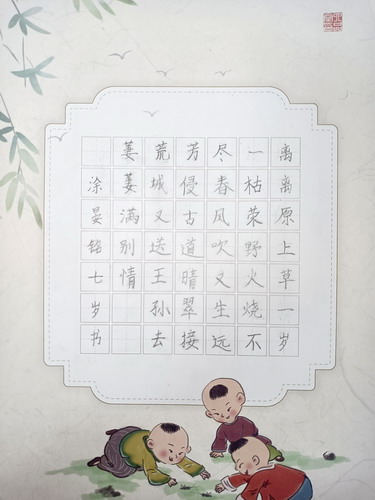 离离原上草一岁
一枯荣野火烧不
尽春风吹又生远
芳侵古道晴翠接
荒城又送王孙去
萋萋满别情
涂晏铭七岁书